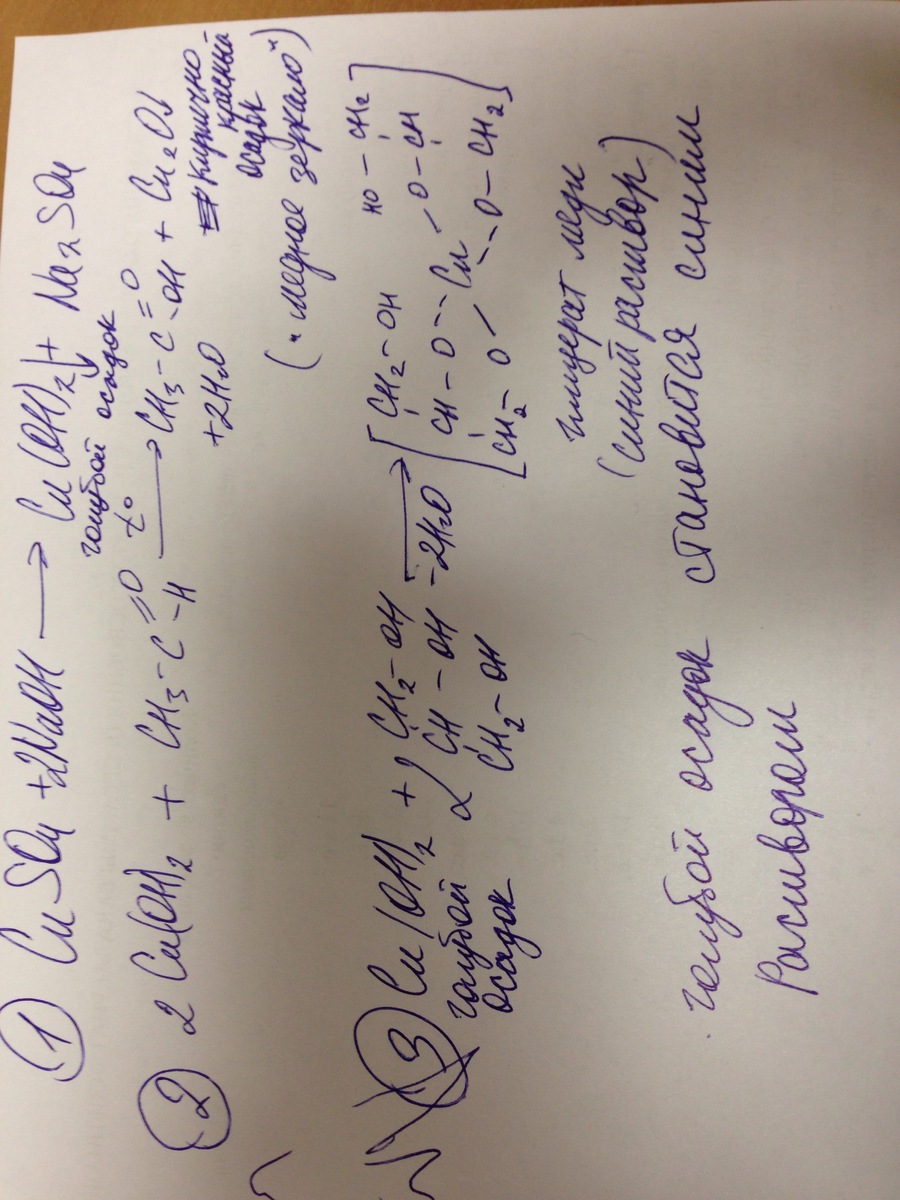 ① CuSO4 + 2NaOH ⟶ Cu(OH)2↓ + Na2SO4
голубой осадок
② 2Cu(OH)2 + CH3-C=O -H t° ⟶ CH3-C=O -OH + Cu2O↓
+2H2O
кирпично-
красный
осадок
("медное зеркало")
③ Cu(OH)2 + 2 CH2-OH ⟶ [CH2-OH HO-CH2]
голубой CH-OH -2H2O CH-O--Cu-O-CH
осадок CH2-OH CH2-O O-CH2
глицерат меди
(синий раствор)
голубой осадок становится синим
Раствором